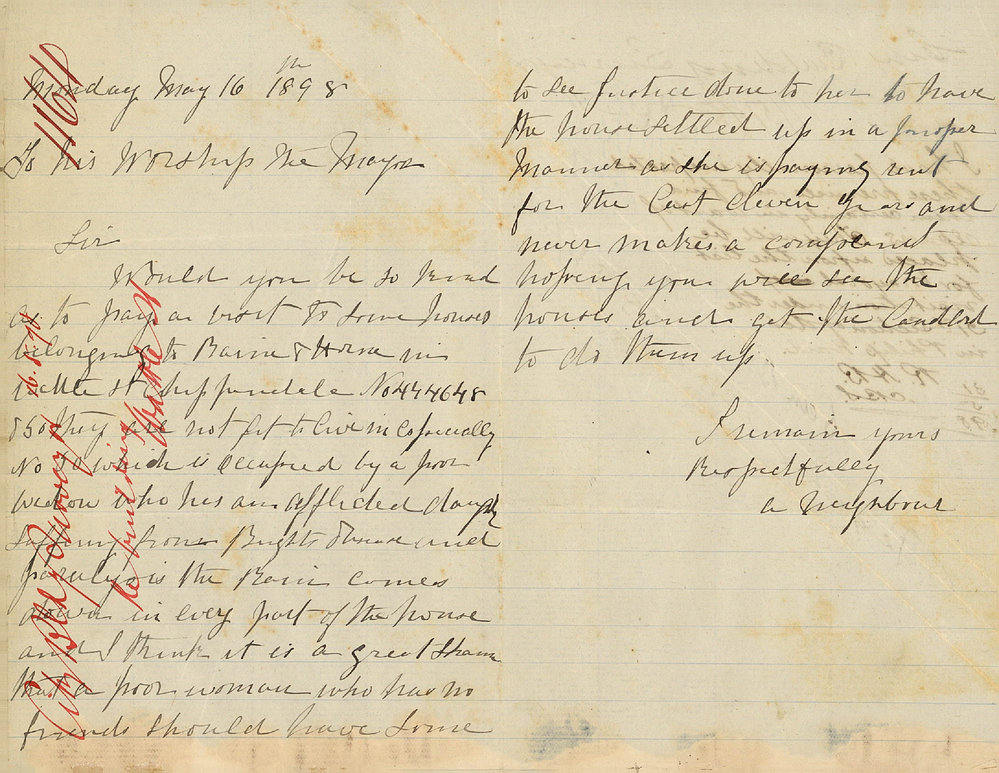 Monday May 16th 1898
To his Worship the Mayor
Sir
Would you be so kind
as to pay a visit to some houses
belonging to Baine & Horne in
Wattle St Chippendale No 44 46 48
& 50 they are not fit to live in especially
No 50 which is occupied by a poor
widow who has an afflicted
suffering from Brights disease and
paralysis the Rain comes
down in every part of the house
and I think it is a great Shame
that a poor woman who has no
friends should have some
to see Justice done to her to have
the house settled up in a proper
Manner as she is paying rent
for the Last eleven years and
never makes a complaint
hopeing you will see the
houses and get the Landlord
to do them up
I remain yours
Respectfully
a neighbour
1164
City Bldg Surveyor 16.5.98
re buildings
Wattle St